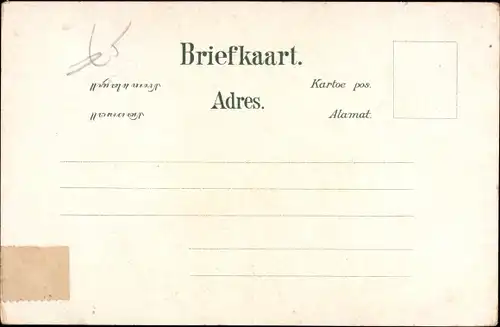 65
Briefkaart.
Kartoe pos.
Adres.
Alamat.